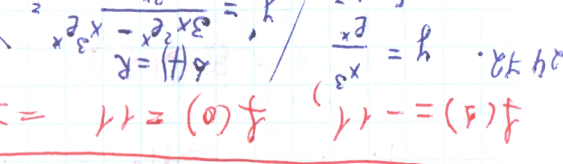 f(1) = -11, f(0) = 11 =
D(f) = R
2472. y = x³/eˣ / y' = 3x²eˣ - x³eˣ